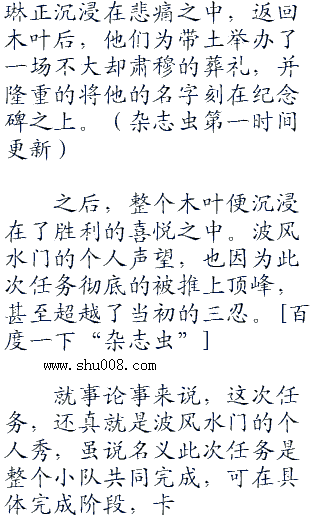 琳正沉浸在悲痛之中，返回
木叶后，他们为带土举办了
一场不大却肃穆的葬礼，并
隆重的将他的名字刻在纪念
碑之上。（杂志虫第一时间
更新）
之后，整个木叶便沉浸
在了胜利的喜悦之中。波风
水门的个人声望，也因为此
次任务彻底的被推上顶峰，
甚至超越了当初的三忍。[百
度一下“杂志虫”]
www.shu008.com
就事论事来说，这次任
务，还真就是波风水门的个
人秀，虽说名义此次任务是
整个小队共同完成，可在具
体完成阶段，卡